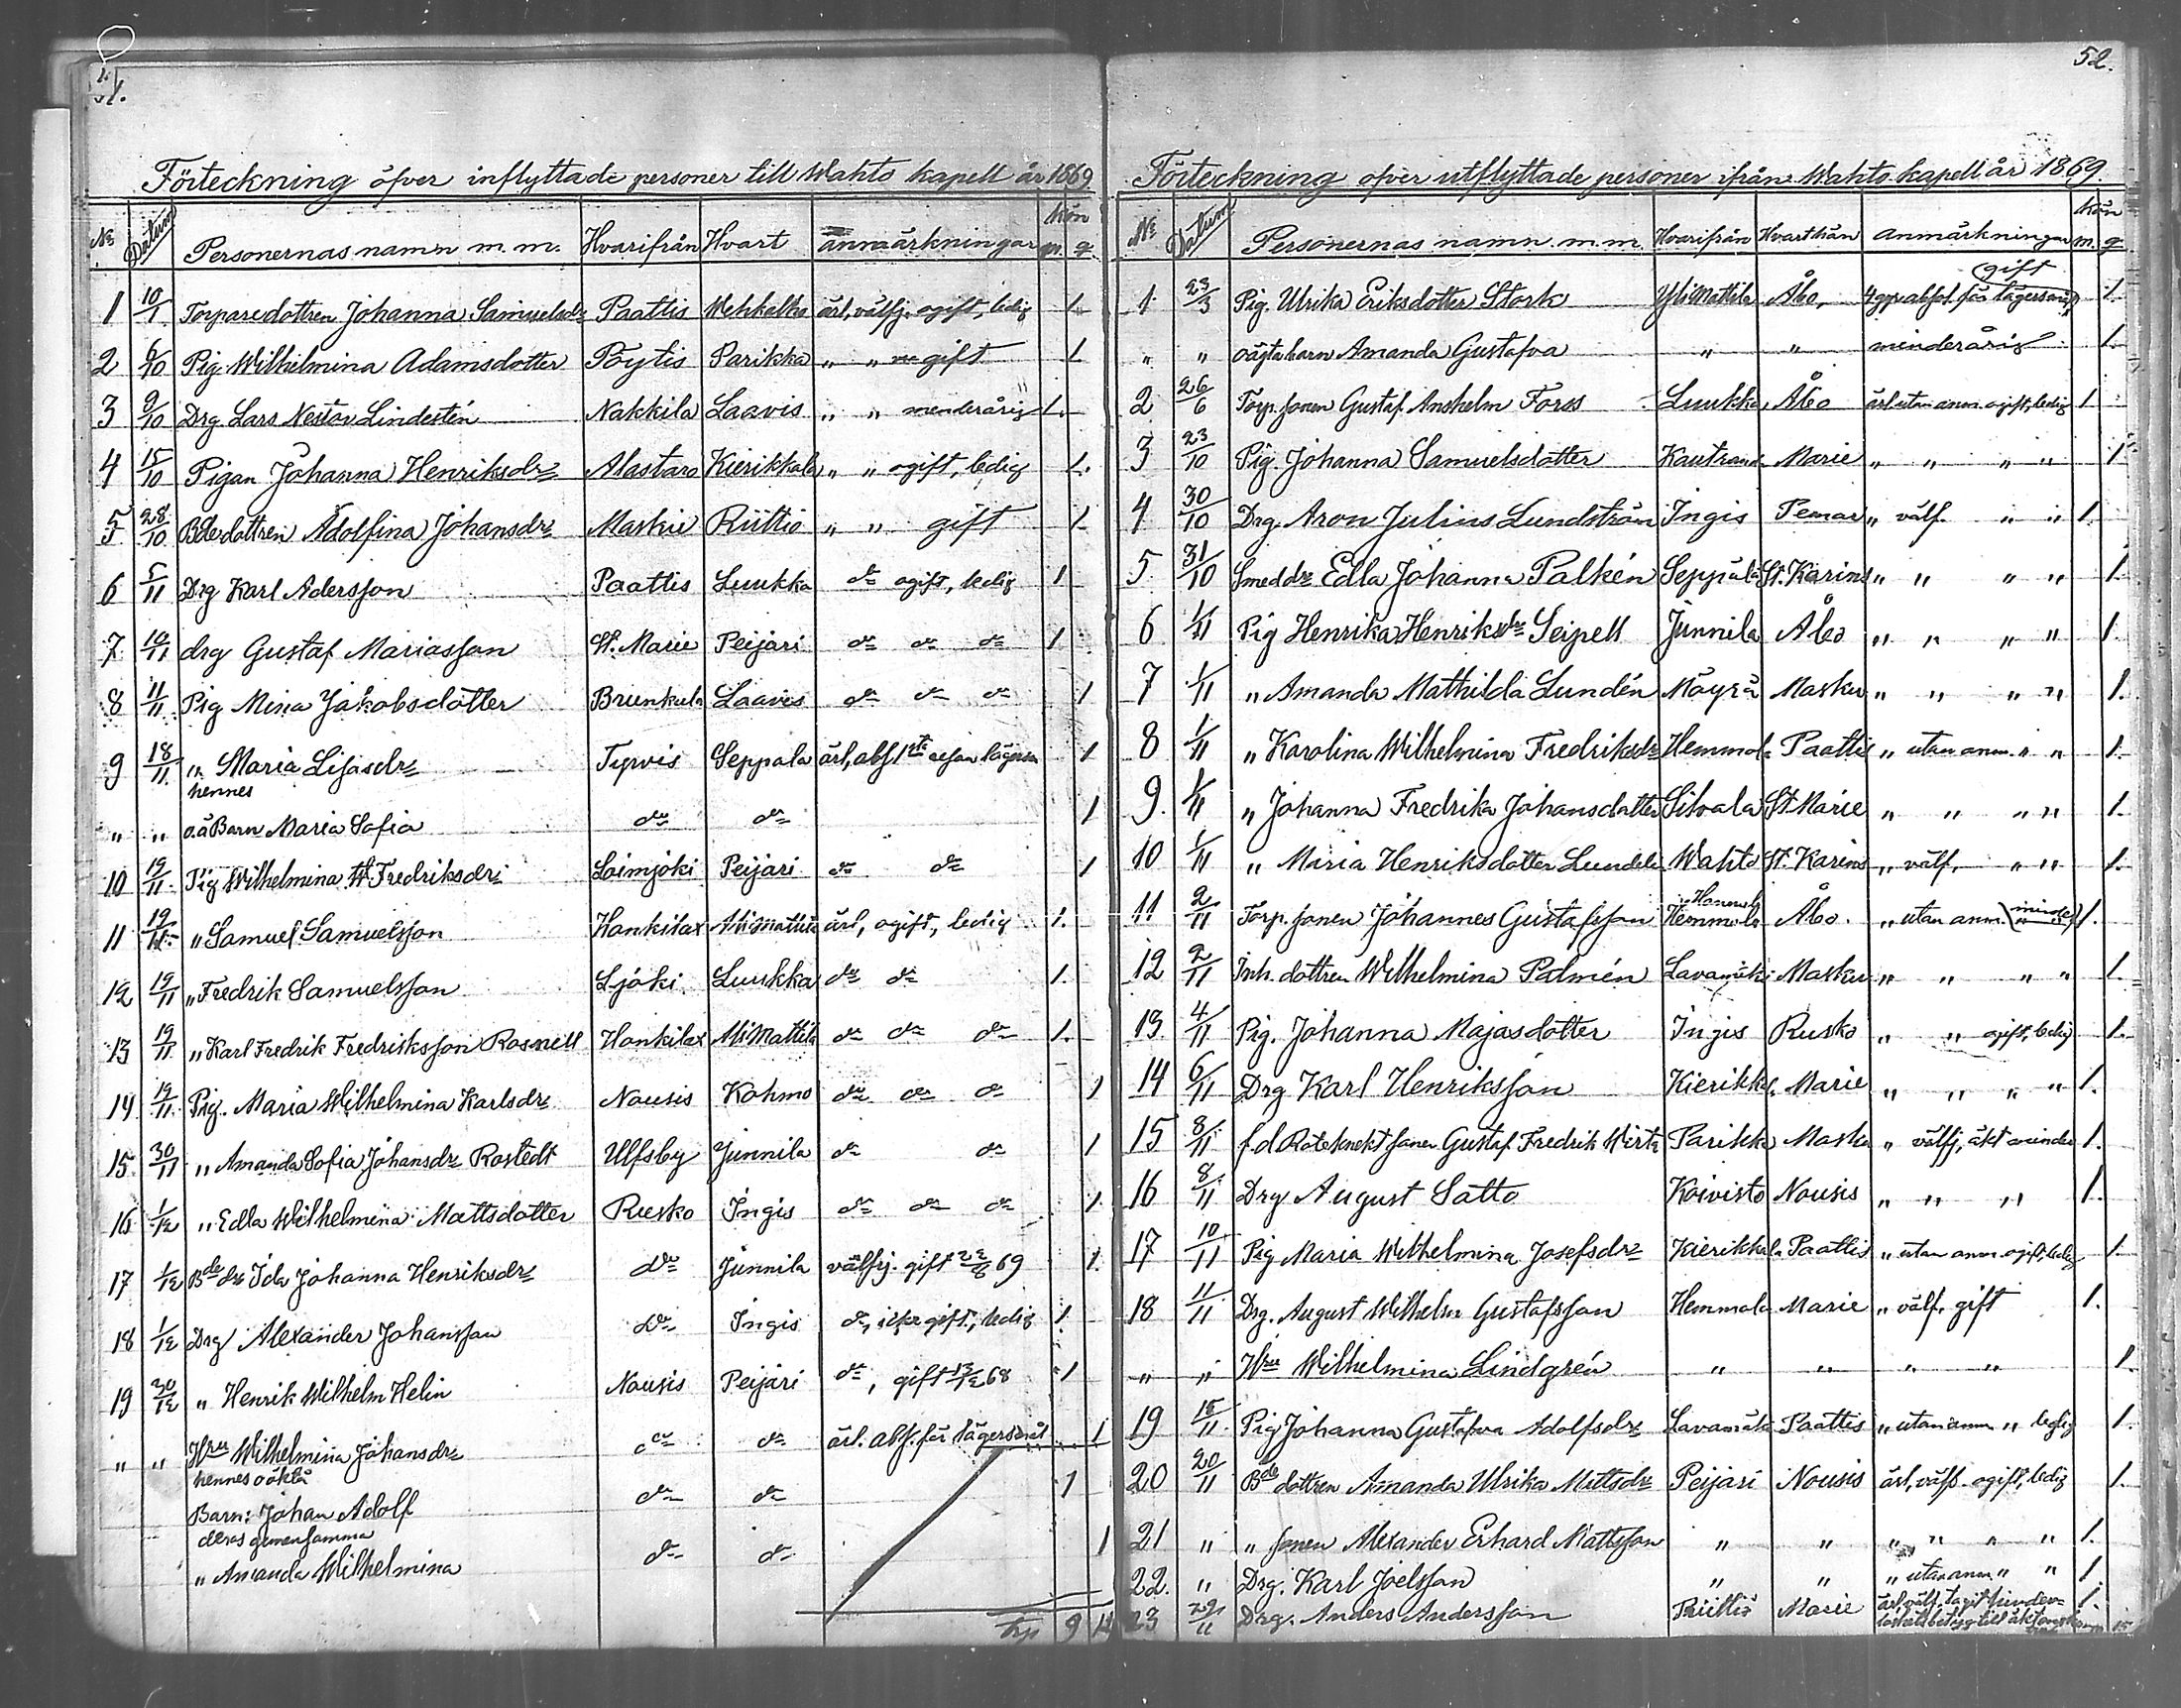 51.
Förteckning öfver inflyttade personer till Wahto kapell år 1869
No Datum Personernas namn m. m. Hvarifrån Hvart anmärkningar kön m. q.
1 10/1 Torparedottren Johanna Samuelsdr Paattis Wehkalho ärl, välfj. ogift, ledig 1.
2 6/10 Pig. Wilhelmina Adamsdotter Pöytis Parikka „ „ gift 1
3 9/10 Drg. Lars Nestor Lindestén Nakkila Laavis „ „ minderårig 1.
4 15/10 Pigan Johanna Henriksdr Alastaro Kierikkala „ „ ogift, ledig 1.
5 28/10 Bdedottren Adolfina Johansdr Maskie Riittiö „ „ gift 1.
6 5/11 Drg Karl Andersson Paattis Luukka do ogift, ledig 1
7 10/11 drg Gustaf Mariasson St. Marie Peijari do do do 1
8 11/11 Pig Mina Jakobsdotter Brunkula Laavis do do do 1
9 18/11 „ Maria Lisasdr Tyrvis Seppala ärl, abs 1sta resan lägersm 1
hennes
„ „ o.ä Barn Maria Sofia do do 1
10 19/11 Pig Wilhelmina Fredriksdr Loimjoki Peijari do do 1
11 19/11 „ Samuel Samuelsson Honkilax YliMattila ärl, ogift, ledig 1.
12 19/11 „ Fredrik Samuelsson Ljoki Luukka do do 1.
13 19/11 „ Karl Fredrik Fredriksson Rosnell Honkilax YliMattila do do do 1.
14 19/11 Pig. Maria Wilhelmina Karlsdr Nousis Kohmo do do do 1
15. 30/11 „ Amanda Sofia Johansdr Rostedt Ulfsby Junnila do do 1
16 1/12 „ Edla Wilhelmina Mattsdotter Rusko Ingis do do do 1.
17 1/12 Bde dr Ida Johanna Henriksdr do Junnila välfrj. gift 22/8 69 1.
18 1/12 Drg Alexander Johansson do Ingis do, icke gift, ledig 1.
19 30/12 „ Henrik Wilhelm Helin Nousis Peijari do, gift 13/12 68 1
„ „ Hru Wilhelmina Johansdr do do ärl. abs. för lägersmål 1
hennes oäkta
Barn: Johan Adolf do do 1
deras gemensamma
„ Amanda Wilhelmina do do 1
9 14
52.
Förteckning öfver utflyttade personer ifrån Wahto kapell år 1869.
No Datum Personernas namn m. m. Hvarifrån Hvarthän Anmärkningar kön m. q.
gift
1. 23/3 Pig. Ulrika Eriksdotter Stork YliMattila Åbo, 4 ggr absol. för lägersmål, 1.
„ „ oägta barn Amanda Gustafva „ „ minderårig 1.
2 26/6 Torp. sonen Gustaf Anshelm Forss Luukka Åbo ärl utan anm. ogift, ledig 1
3 23/10 Pig. Johanna Samuelsdotter Kautrand Marie „ „ „ „ 1
4 30/10 Drg. Aron Julius Lundström Ingis Pemar „ välf. „ „ 1.
5 31/10 Smeddr Edla Johanna Palkén Seppälä St. Karins „ „ „ „ 1.
6 1/11 Pig Henrika Henriksdr Seipell Junnila Åbo „ „ „ „ 1.
7 1/11 „ Amanda Mathilda Lundén Mäyrä Masku „ „ „ „ 1.
8 1/11 „ Karolina Wilhelmina Fredriksdr Hemmola Paattis „ utan anm. „ „ 1.
9. 1/11 „ Johanna Fredrika Johansdotter Silvala St Marie „ „ „ „ 1.
10 1/11 „ Maria Henriksdotter Lundel Wahto St. Karins „ välf. „ „ 1.
11 2/11 Torp. sonen Johannes Gustafsson Hemmola Åbo. „ utan anm. (minder) 1.
12 2/11 Inh. dottren Wilhelmina Palmén Lavamäki Masku „ „ „ „ 1.
13. 4/11 Pig. Johanna Majasdotter Ingis Rusko „ „ ogift, ledig 1.
14 6/11 Drg Karl Henriksson Kierikkl. Marie „ „ „ „ 1.
15 8/11 f.d Roteknekt sonen Gustaf Fredrik Wirta Parikka Masku „ välfj, äkt minder 1.
16 8/11 Drg August Salto Koivisto Nousis „ „ „ 1.
17 10/11 Pig Maria Wilhelmina Josefsdr Kierikkala Paattis „ utan anm ogift, ledig 1.
18 11/11 Drg. August Wilhelm Gustafsson Hemmola Marie „ välf. gift 1.
„ „ Hru Wilhelmina Lindgrén „ „ „ „ 1.
19 15/11 Pig Johanna Gustafva Adolfsdr Lavamäki Paattis „ utan anm „ ledig 1.
20 20/11 Bde dottren Amanda Ulrika Mattsdr Peijari Nousis ärl, välf. ogift, ledig 1.
21 „ „ sonen Alexander Erhard Mattsson „ „ „ „ „ „ 1.
22. „ Drg. Karl Joelsson „ „ „ utan anm „ „ 1
23 29/11 Drg. Anders Andersson Riittiö Marie ärl, välf. tagit hinder- 1.
löshetsbetyg till äktenskap 15